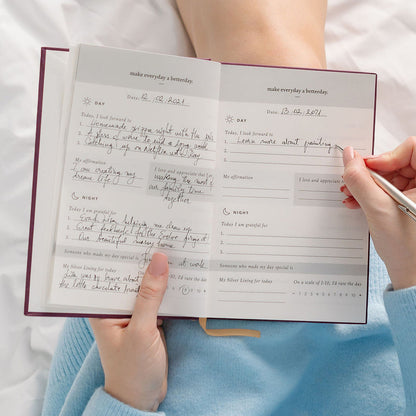 make everyday a betterday.
Date: 12.02.2021
DAY
Today, I look forward to
1 Homemade pizza night with the kids
2 A glass of wine to end a long week
3 Catching up on Netflix with
My affirmation
I am creating my
dream life
I love and appreciate that
making the most of
our family time
together
NIGHT
Today I am grateful for
1. Evan helping me clean up
2. Great feedback for the project
3. Our beautiful cosy home
Someone who made my day special is
at work
My Silver Lining for today
On a scale of 1-10, I'd rate the day
was so brave about
the little chocolate
make everyday a betterday.
Date: 13.02.2021
DAY
Today, I look forward to
1 Learn more about
2
3
My affirmation
I love and appreciate
NIGHT
Today I am grateful for
1.
2.
3.
Someone who made my day special is
My Silver Lining for today
On a scale of 1-10, I'd rate the day
1 2 3 4 5 6 7 8 9 10